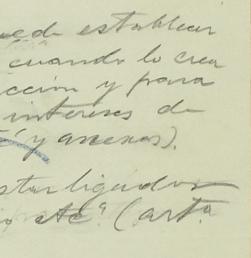 puede establecer
cuando lo crea
cción y para
intereses de
y anexos).
star ligados
etcª (artº